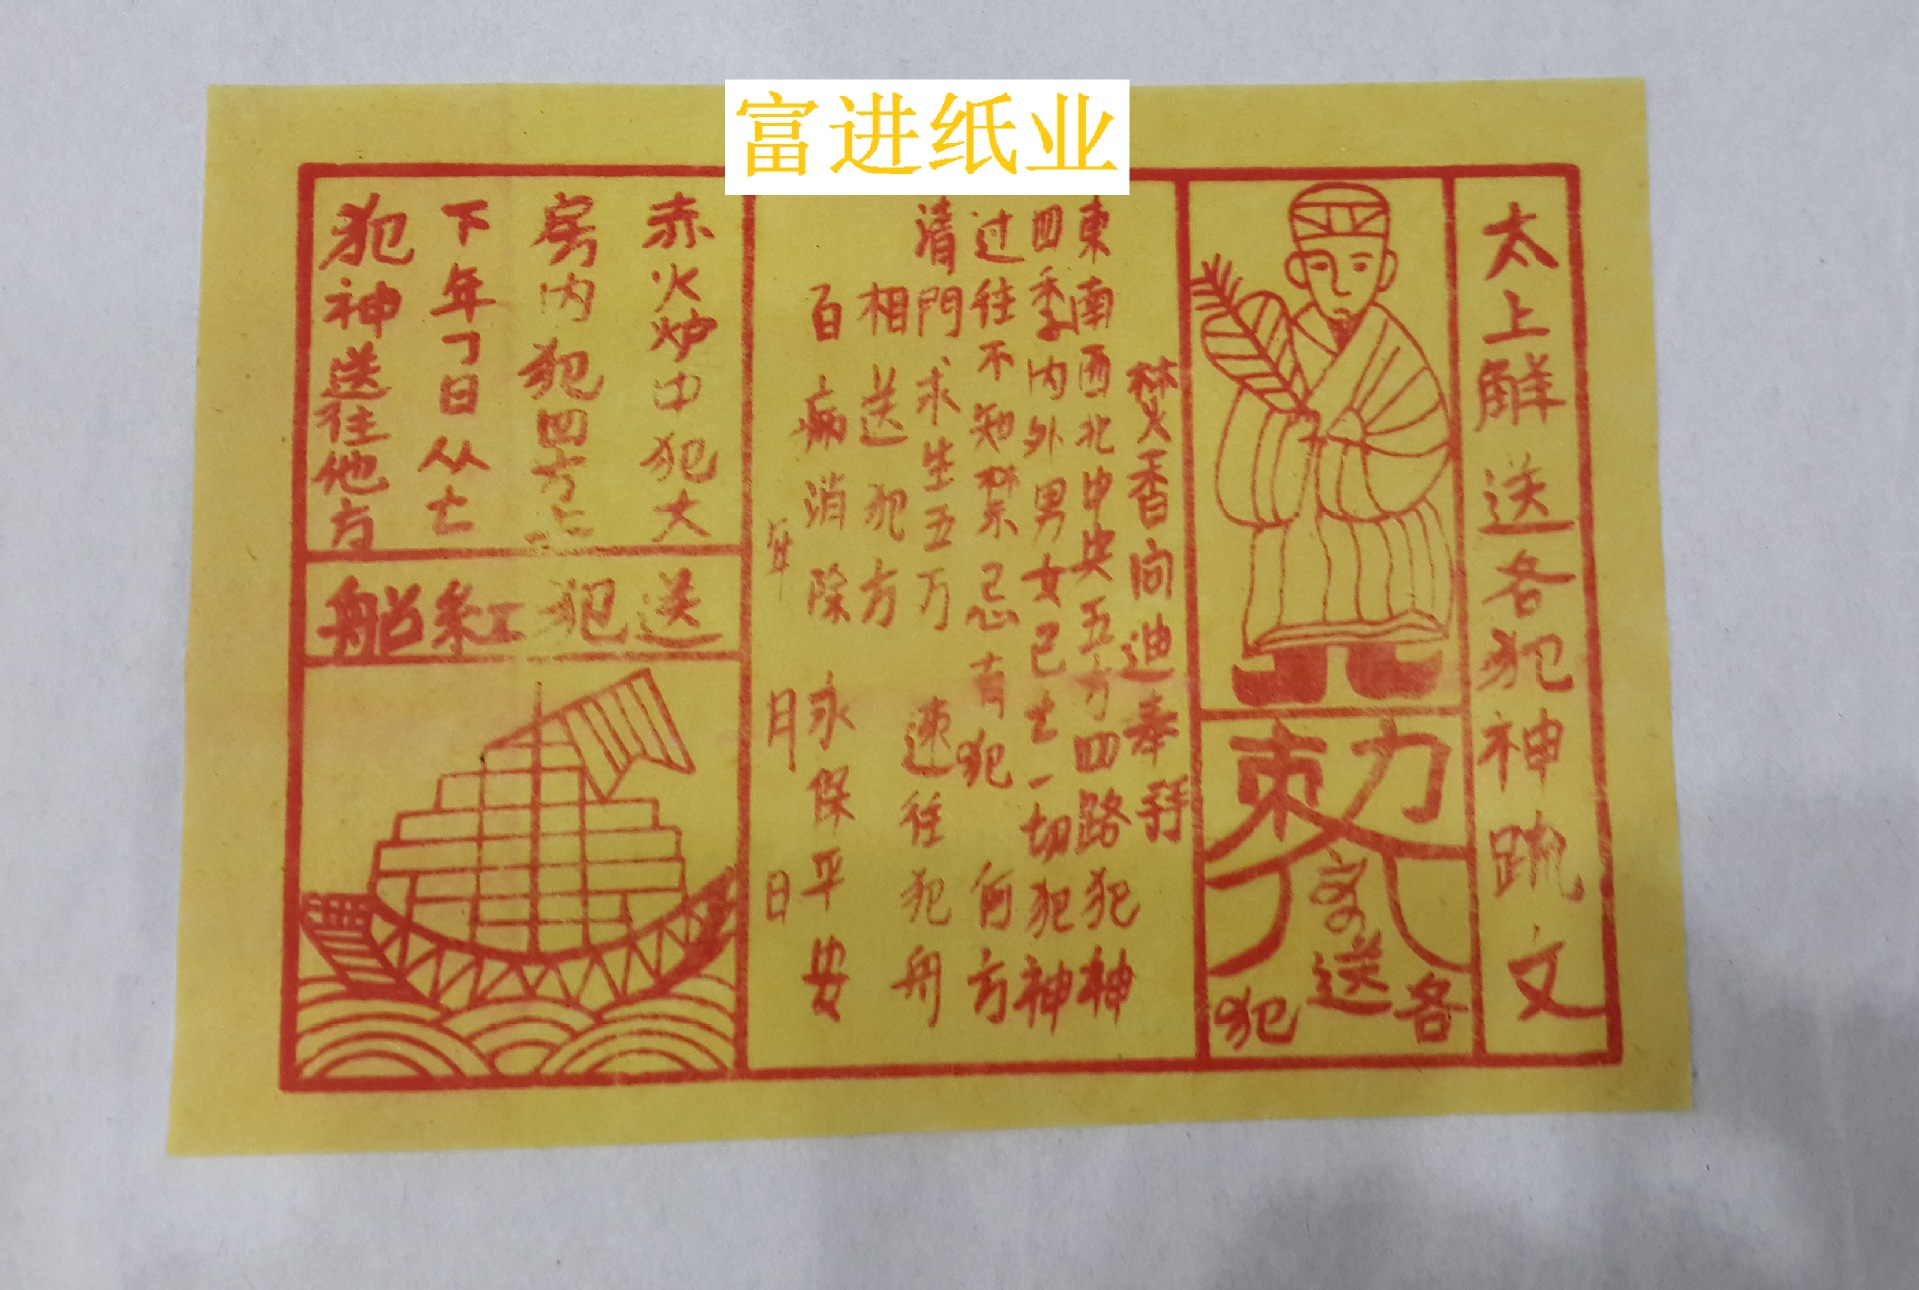 富进纸业
太上解送各犯神疏文
敕
送各
犯
焚香向迪奉拜
東南西北中央五方四路犯神
四季内外男女已亡一切犯神
过往不知禁忌有犯 何方
清門求生五万 速往犯舟
相送犯方
百病消除 永保平安
年 月 日
赤火炉中犯大
房内犯四方亡
下年丁日从亡
犯神送往他方
送犯紅船